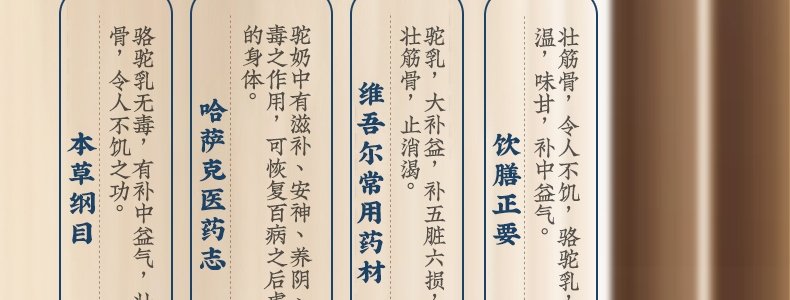 壮筋骨，令人不饥，骆驼乳，
温，味甘，补中益气。
饮膳正要
驼乳，大补益，补五脏六损，
壮筋骨，止消渴。
维吾尔常用药材
驼奶中有滋补、安神、养阴、
毒之作用，可恢复百病之后
的身体。
哈萨克医药志
骆驼乳无毒，有补中益气，
骨，令人不饥之功。
本草纲目